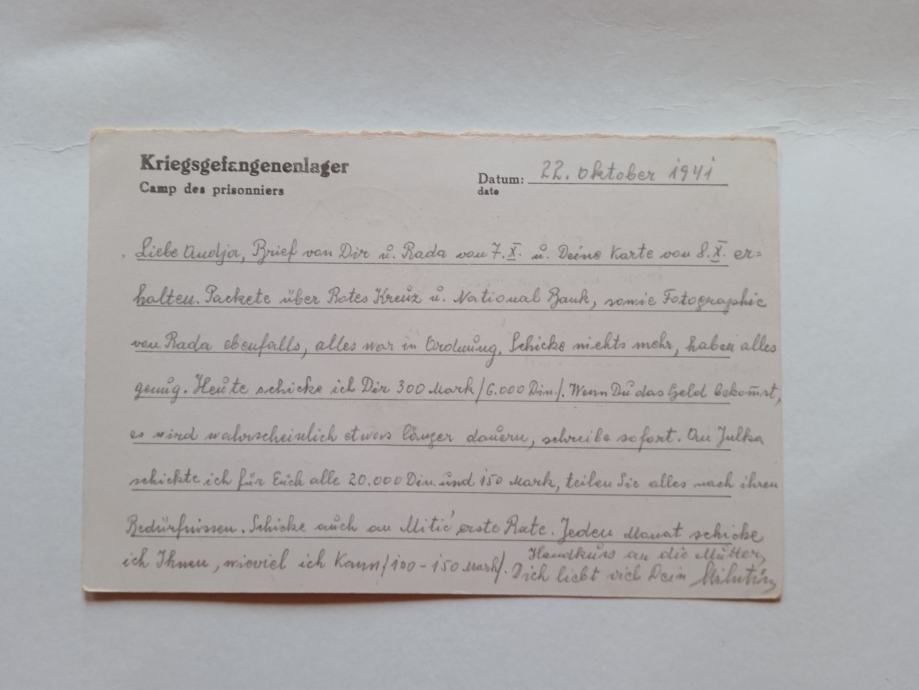 Kriegsgefangenenlager
Camp des prisonniers
Datum: 22. Oktober 1941
date
Liebe Andja, Brief von Dir u. Rada von 7.X. u. Deine Karte von 8.X. er=
halten. Packete über Rotes Kreuz u. National Bank, sowie Fotographie
von Rada ebenfalls, alles war in Ordnung. Schicke nichts mehr, haben alles
genug. Heute schicke ich Dir 300 Mark /6.000 Din/. Wenn Du das Geld bekommst,
es wird wahrscheinlich etwas länger dauern, schreibe sofort. An Julka
schickte ich für Euch alle 20.000 Din und 150 Mark, teilen Sie alles nach ihren
Bedürfnissen. Schicke auch an Mitić erste Rate. Jeden Monat schicke
ich Ihnen, wieviel ich Kann /100-150 Mark/. Handkuss an die Mutter,
Dich liebt viel Dein Milutin